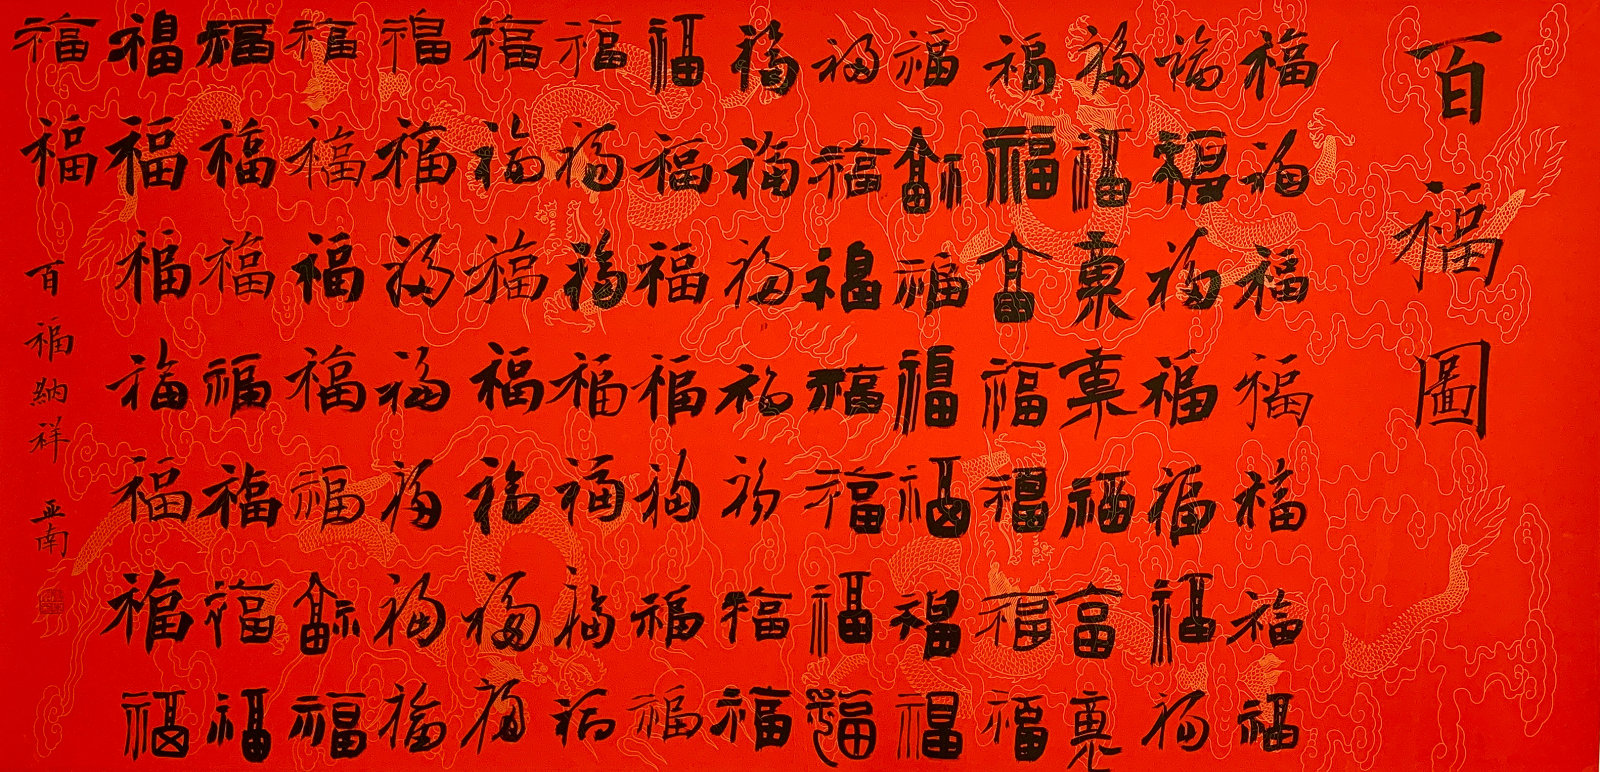 百福圖
福福福福福福福
福福福福福福福
福福福福福福福
福福福福福福福
福福福福福福福
福福福福福福福
福福福福福福福
福福福福福福福
福福福福福福福
福福福福福福福
福福福福福福福
福福福福福福福
福福福福福福福
福福福福福福福
福福
百福納祥 亚南